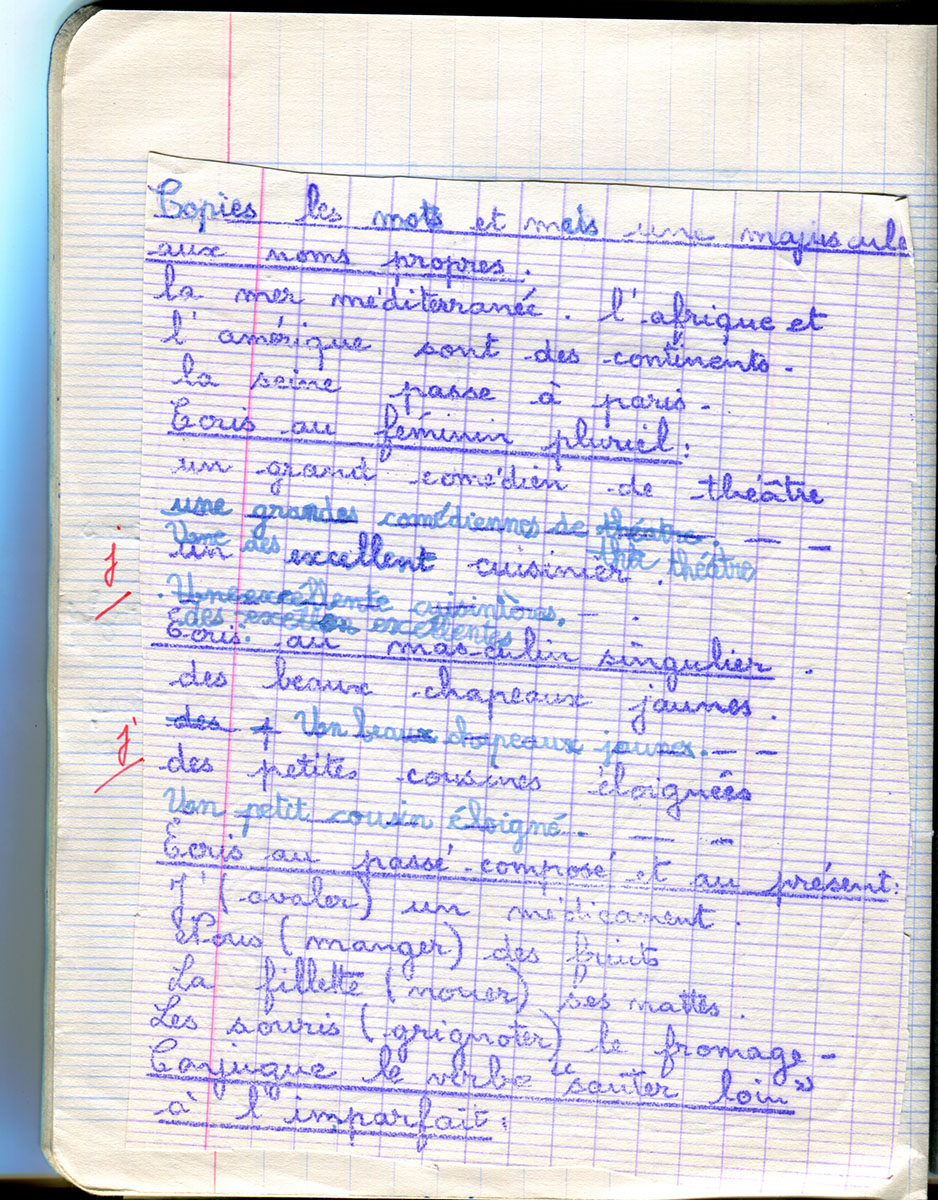 Copies les mots et mets une majuscule
aux noms propres.
la mer méditerranée. l'afrique et
l'amérique sont des continents.
la seine passe à paris.
Ecris au féminin pluriel:
un grand comédien de théâtre
une grandes comédiennes de théatre.
Une des the théâtre
un excellent cuisinier.
Une excellente cuisinières.
des excellentes
Ecris au masculin singulier.
des beaux chapeaux jaunes.
des Un beaux chapeaux jaunes.
des petites cousines éloignées
Un petit cousin éloigné.
Ecris au passé composé et au présent:
J'(avaler) un médicament.
Nous (manger) des fruits
La fillette (nouer) ses nattes.
Les souris (grignoter) le fromage-
Conjugue le verbe "sauter loin"
à l'imparfait:
j
j